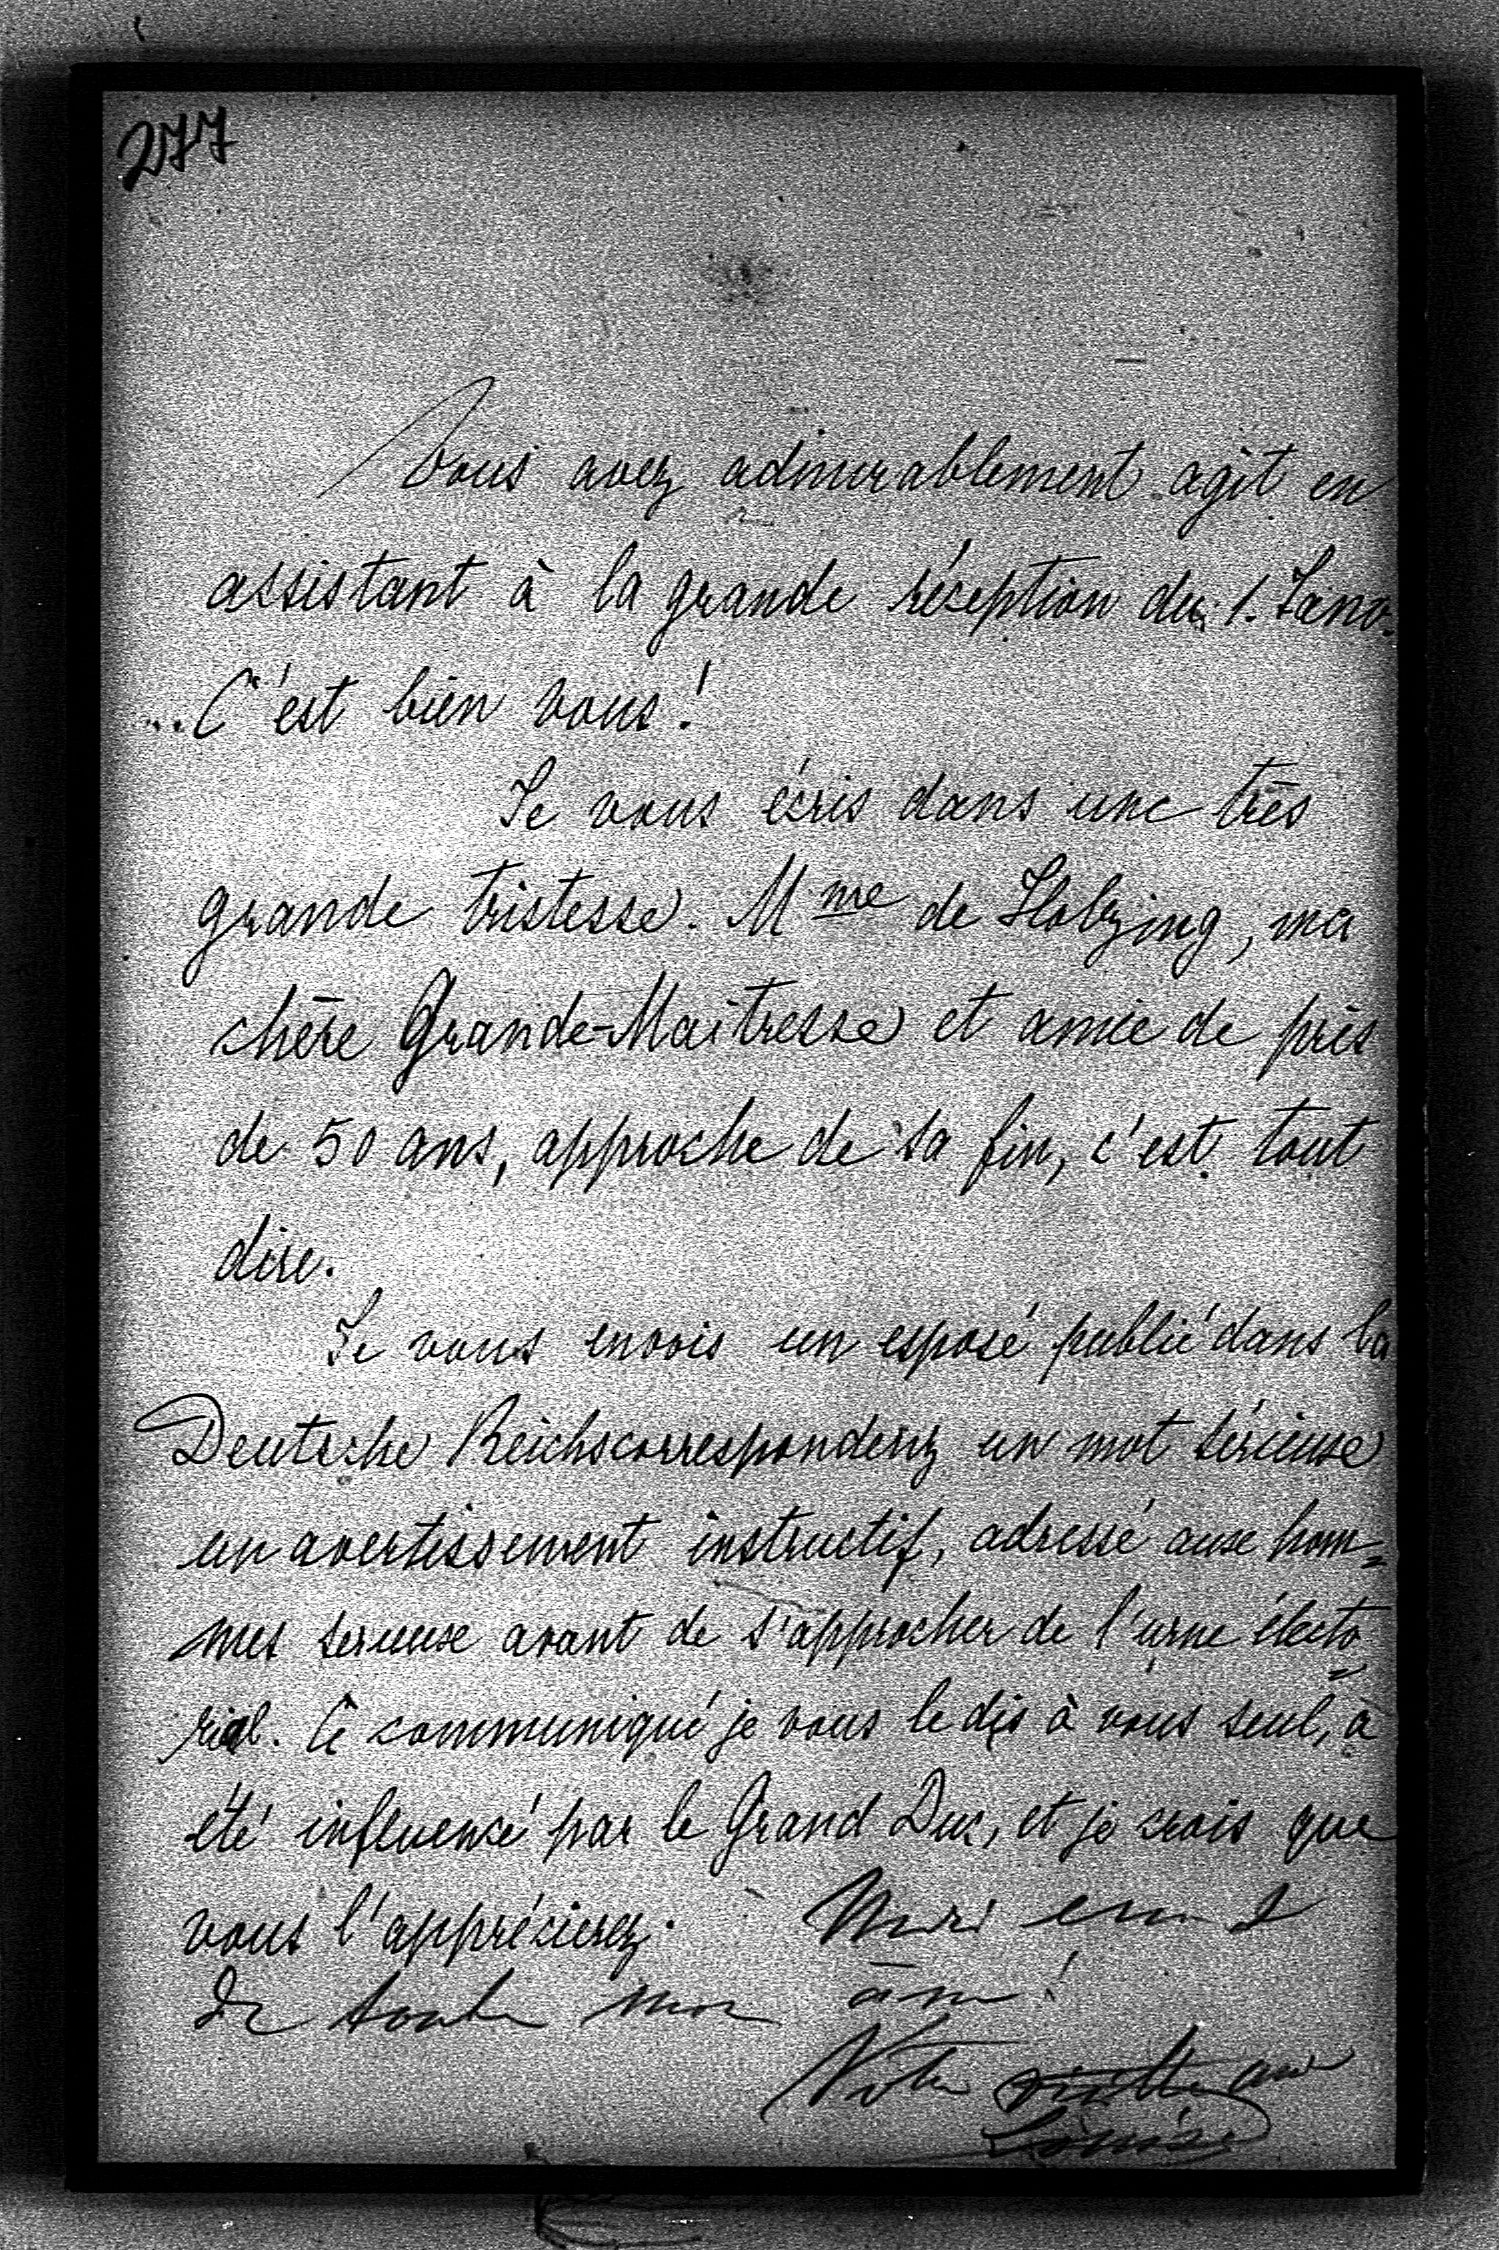 277
Vous avez admirablement agit en
assistant à la grande réception du 1. Janv.
C'est bien vous!
Je vous écris dans une très
grande tristesse. Mme de Holzing, ma
chère Grande-Maitresse et amie de près
de 50 ans, approche de sa fin, c'est tout
dire.
Je vous envois un esposé publié dans la
Deutsche Reichscorrespondenz un mot sérieuse
un avertissement instructif, adressé aux hom=
mes serieuse avant de s'approcher de l'urne électo=
rial. Ce communiqué je vous le dis à vous seul, à
été influencé par le Grand Duc, et je crois que
vous l'apprécierez.
de toute mon âme!
Votre vieille amie
Louise